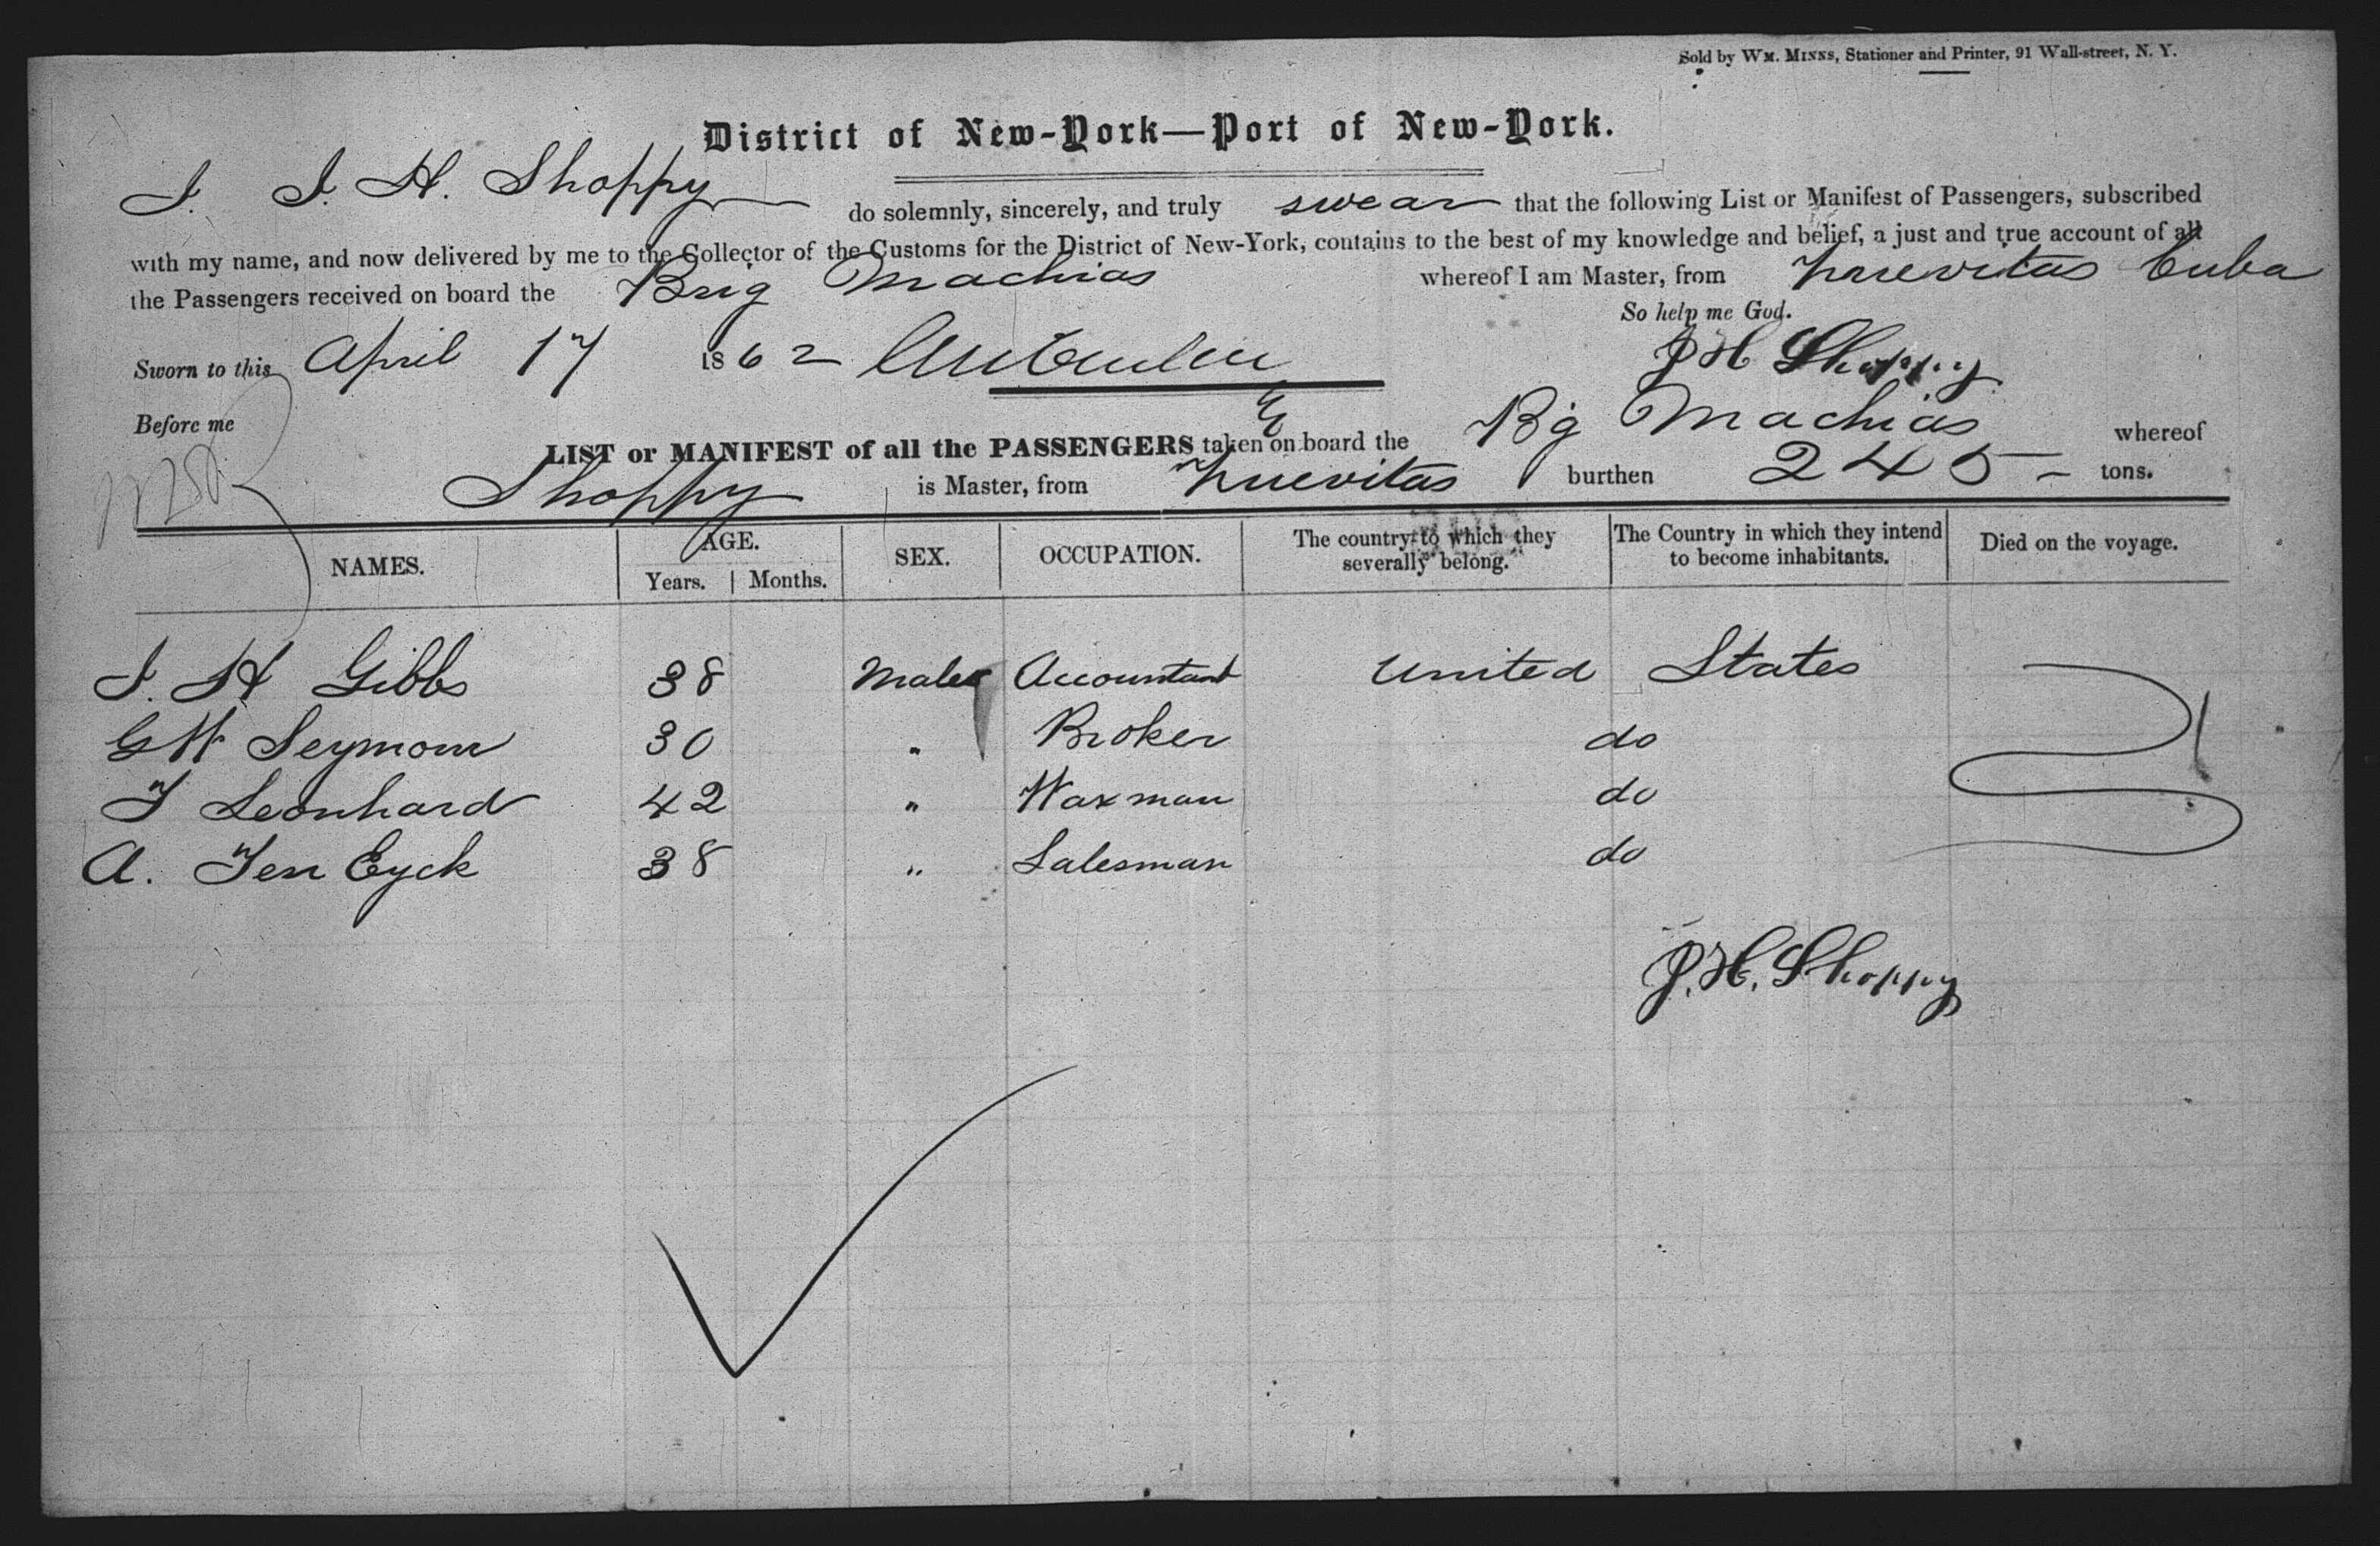 Sold by WM. MINNS, Stationer and Printer, 91 Wall-street, N. Y.
District of New-York—Port of New-York.
I. J. H. Shoppy do solemnly, sincerely, and truly swear that the following List or Manifest of Passengers, subscribed
with my name, and now delivered by me to the Collector of the Customs for the District of New-York, contains to the best of my knowledge and belief, a just and true account of all
the Passengers received on board the Brig Machias whereof I am Master, from Nuevitas Cuba
So help me God.
Sworn to this April 17 1862 J H Shoppy
Before me
LIST or MANIFEST of all the PASSENGERS taken on board the Bg Machias whereof
Shoppy is Master, from Nuevitas burthen 245 - tons.
NAMES. AGE. SEX. OCCUPATION. The country to which they severally belong. The Country in which they intend to become inhabitants. Died on the voyage.
Years. Months.
J. H Gibbs 38 Males Accountant United States
G W Seymour 30 " Broker do
T Leonhard 42 " Waxman do
A. Ten Eyck 38 " Salesman do
J. H. Shoppy